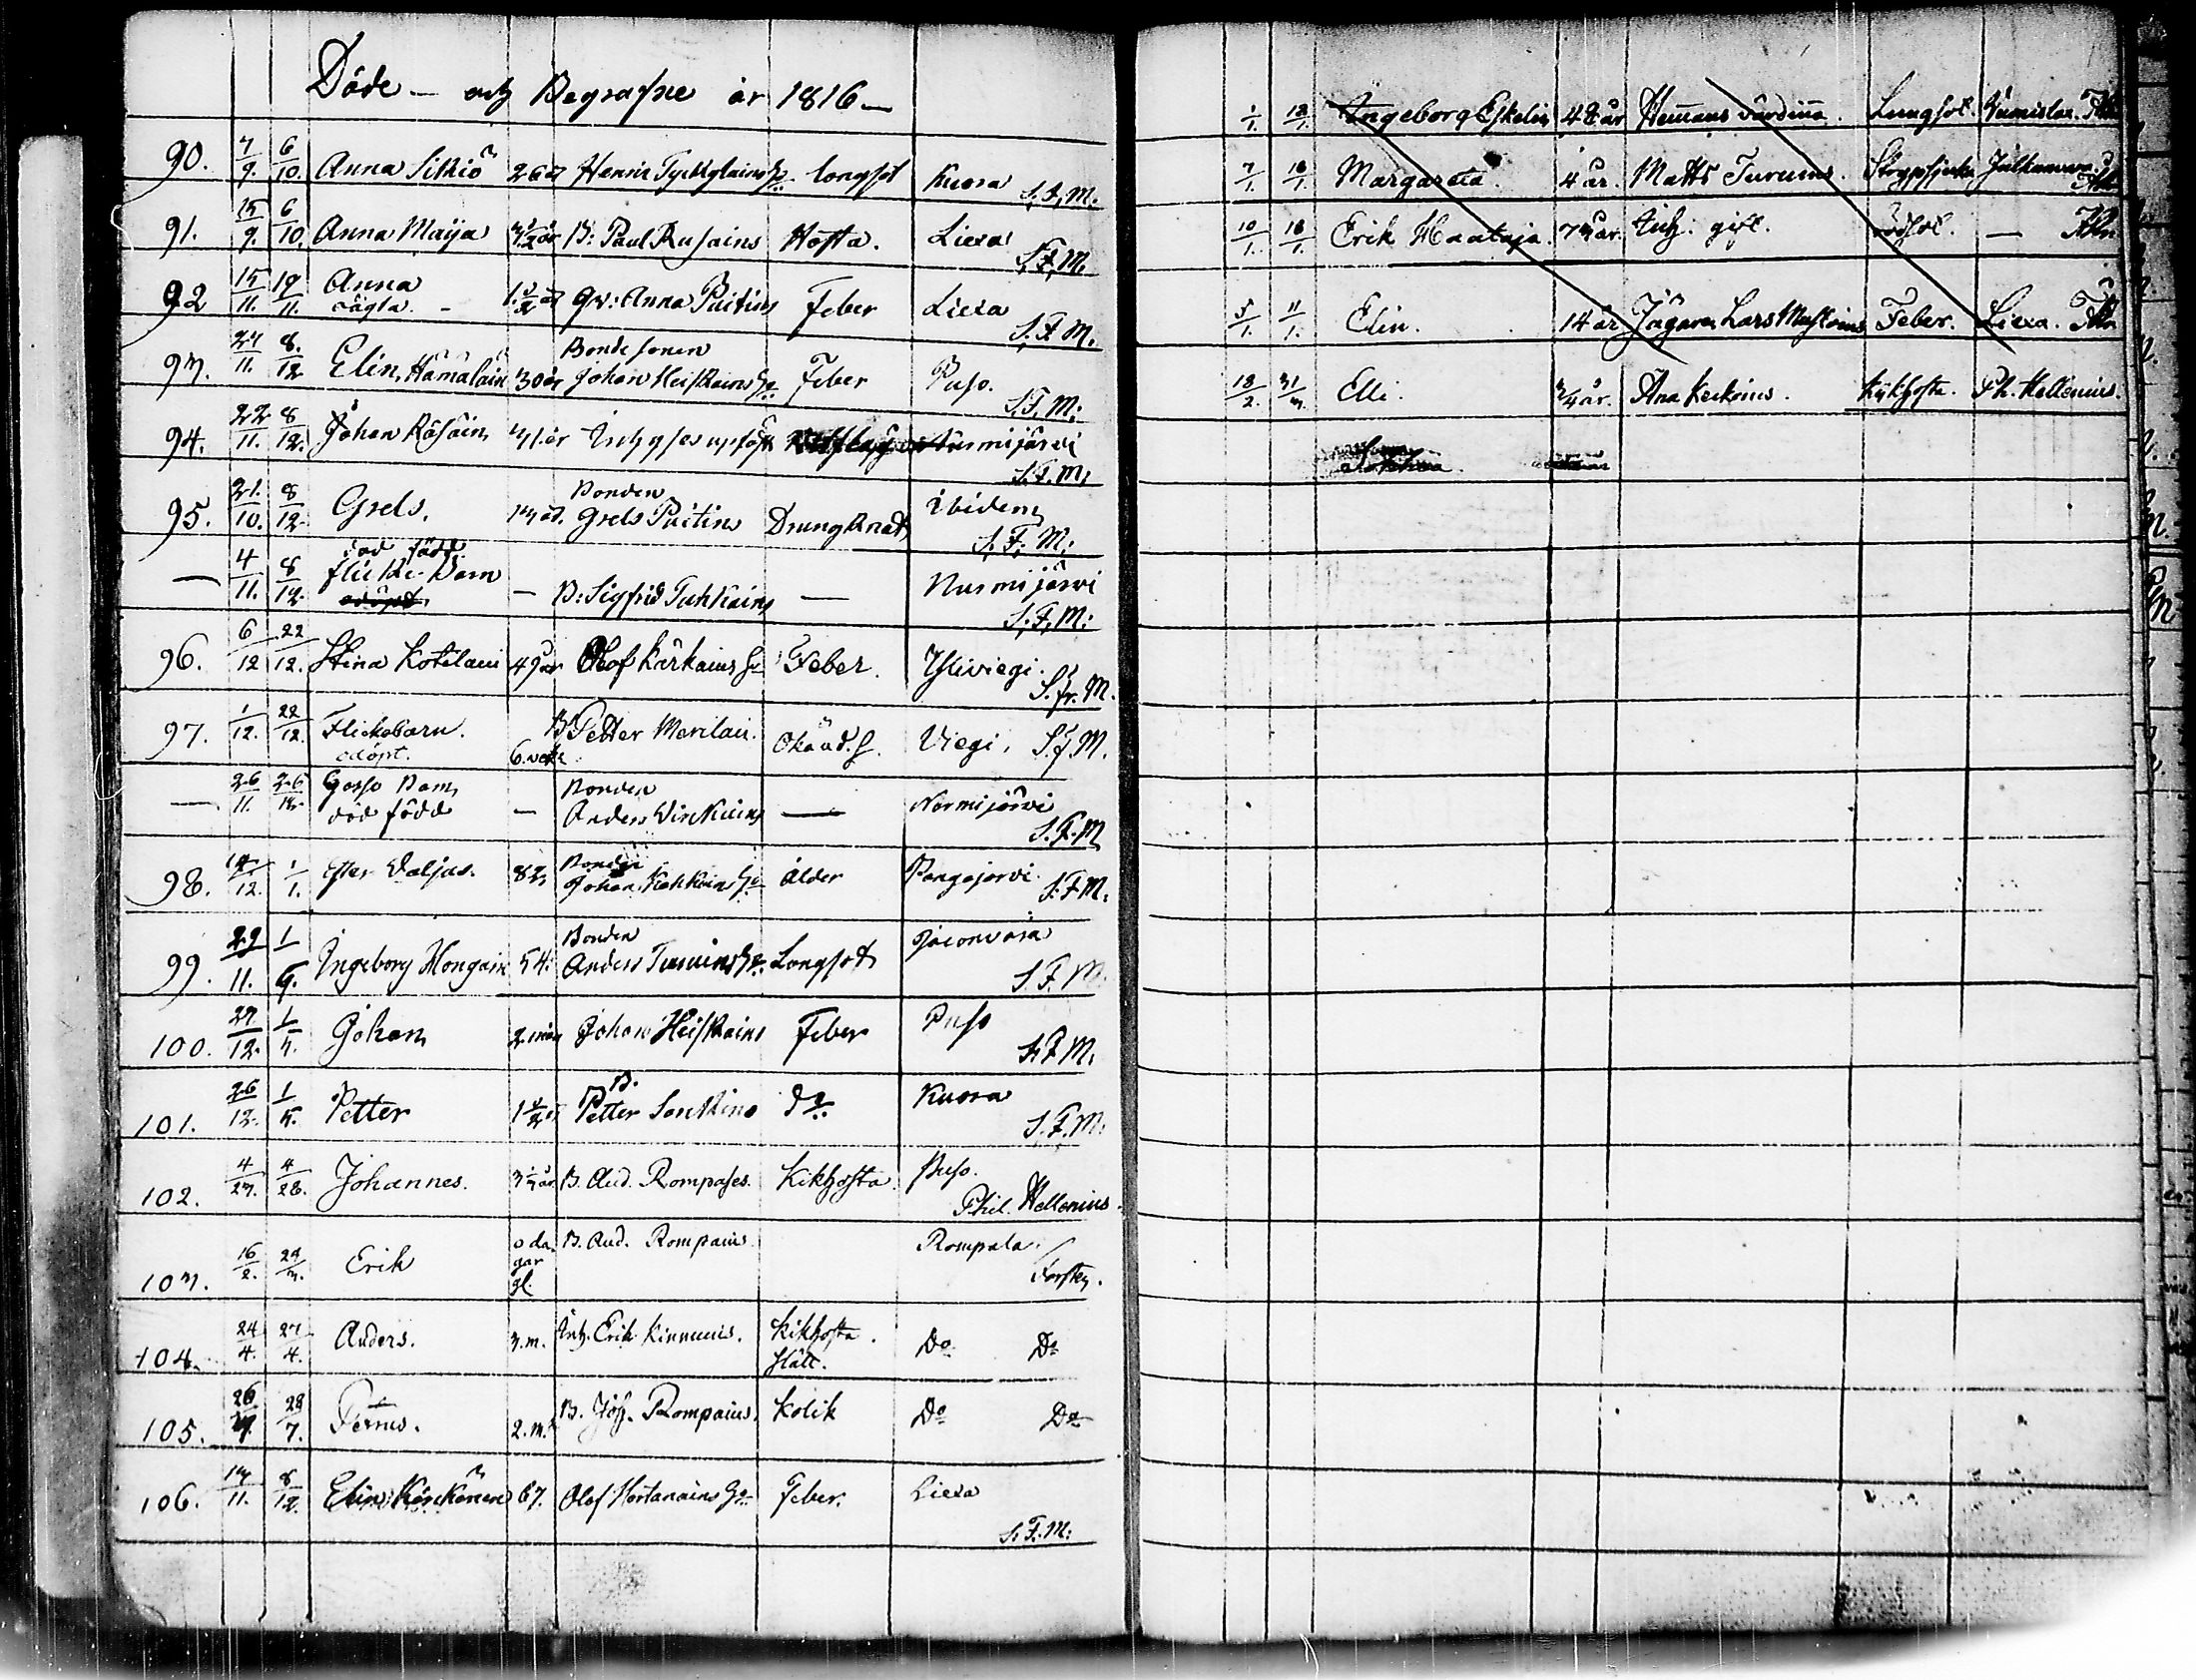 Döde – och Begrafne år 1816 –
90. 7/9. 6/10. Anna Sikiö 26 år Henric Tyckyläins h:u longsot Kuora S. F. M.
91. 15/9. 6/10. Anna Maija 3 1/2 år B: Paul Rusains Hosta. Liexa S. F. M.
92 15/11. 19/11. Anna oägta. – 1. 1/2 år Qv: Anna Puitins Feber Liexa S. F. M.
Bonde sonen
93. 27/11. 8./12 Elin Hämäläin 30 år Johan Heiskains h:u Feber Puso. S. F. M:
94. 22/11. 8/12. Johan Räsäin 31. år Nurmijärvi S. F. M;
Bonden
95. 21./10. 8/12. Grels. 13 år. Grels Puitins Drunknat ibidem S. F. M;
död född
— 4/11. 8/12. flicke Barn – B: Sigfrid Turkkains — Nurmijärvi S. F. M:
96. 6/12 22/12. Stina Kotilain 49 år Olof Kärkains h:u Feber. Yliviegi. S. fr. M.
97. 1/12. 22/12. Flickebarn. B. Petter Merilain. Okänd. s. Viegi, S. f. M.
odöpt. 6. vek
— 26/11. 26/12. Gosse Barn Bonden
död född – Anders Wirkkains — Nurmijärvi S. F. M
Bonden
98. 14/12. 1/1. Ester Valjus. 82, Johan Kahkoin h:u ålder Pangajarvi. S. F M.
Bonden
99. 29/11. 1/6. Ingeborg Mongain 54. Anders Turuins h:u. Longsot Jaconvara S. F. M.
100. 27./12. 1/5. Johan 2. mån Johan Heiskains Feber Puso S. F. M.
B.
101. 26/12. 1/5. Petter 1 1/2 år Petter Sorkkins d:o Kuora S. F. M:
102. 4/23. 4/28. Johannes. 3/4 år. B. And. Rompases. Kikhosta Puso. Phil. Hellenius.
103. 16/2. 24/3. Erik 8 dagar gl. B. And. Rompains. Rompala. Forstén.
104. 24/4. 27/4. Anders. 3. m. Inh. Erik Kinnunis. Kikhosta. D:o D:o
105. 26/7. 28/7. Petrus. 2. m. B. Joh. Rompains. Kolik D:o D:o
106. 13/11. 8/12. Elin Körkönen 67. Olof Hortanains h:u Feber. Liexa S. F. M:
1/1. 12/1. Ingeborg Eskelin 48 år Hemans värdinna. Lungsot.
7/1. 16/1. Margareta. 4 år. Matts Turuins. Strypsjuka
10/1. 16/1. Erik Haataja. 73 år. Inh. gift. —
5/1. 11/1. Elin. 14 år Jägaren Lars Mustoins Feber. Liexa.
18/2. 31/3. Elli. 3/4 år. Ana Keckoins. Kikhosta. Ph. Hellenius.